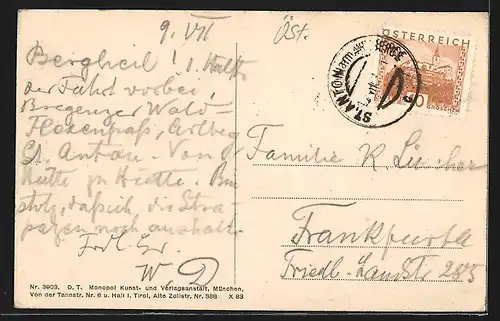 9. VII
Bergheil! 1. Hälfte
der Fahrt vorbei,
Bregenzer Wald-
Flexenpaß, Arlberg
St. Anton. Von
Hütte zu Hütte. Bin
stolz, daß ich die Stra-
pazen noch aushalte.
Frdl. Gr.
W. D
Nr. 3903. D. T. Monopol Kunst- und Verlagsanstalt, München,
Von der Tannstr. Nr. 6 u. Hall i. Tirol, Alte Zollstr. Nr. 388 X 83
Öst.
ÖSTERREICH
ST. ANTON am ARLBERGE
Familie K.
Frankfurt a
Friedb. Landstr 285